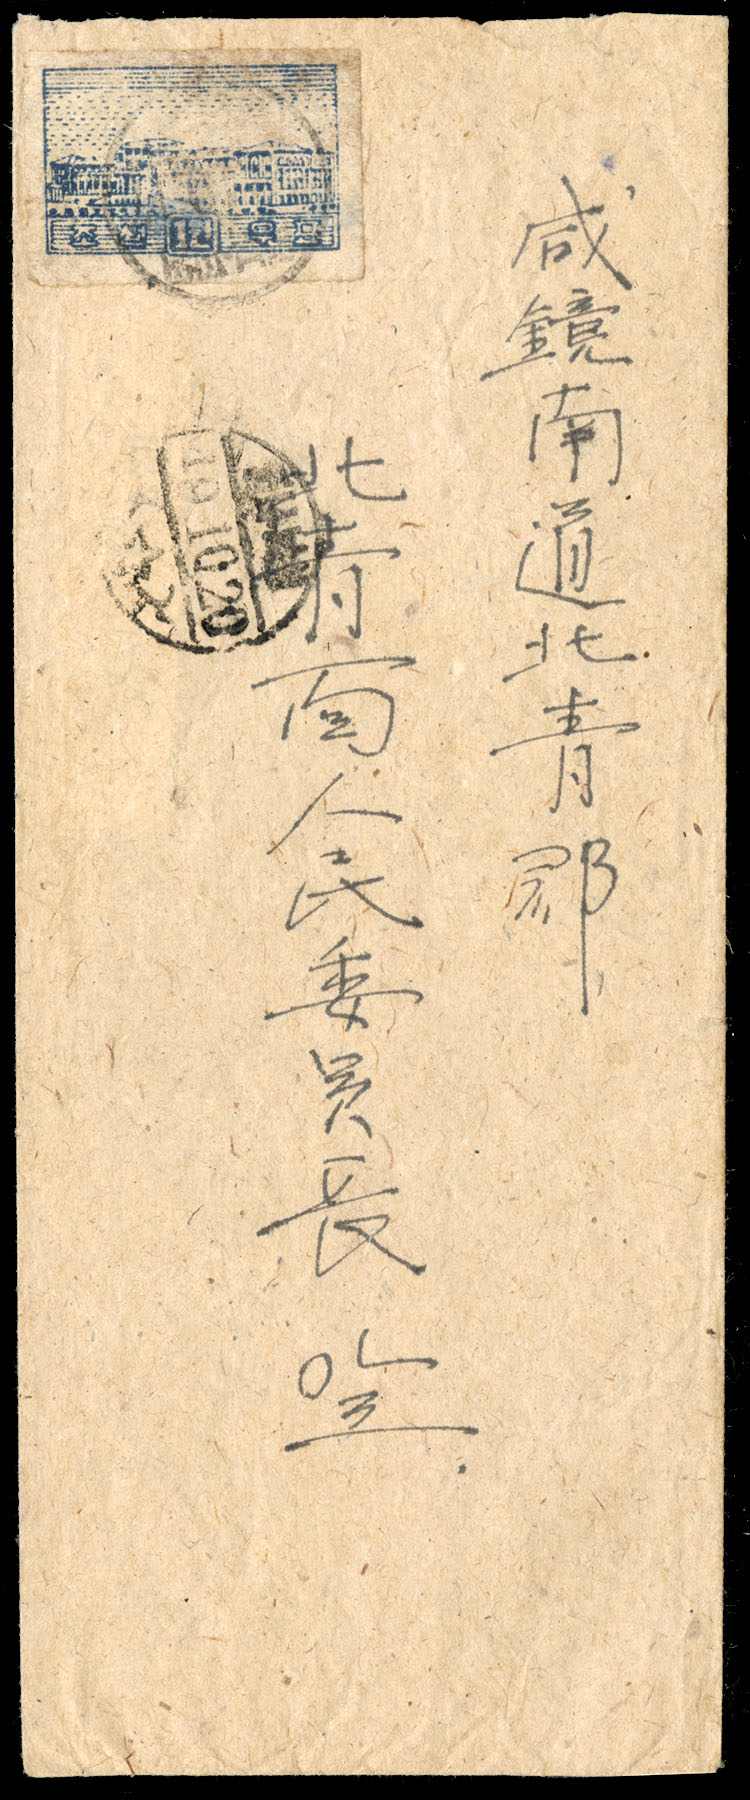 咸鏡南道北青郡
北青面人民委員長 앞
10.20